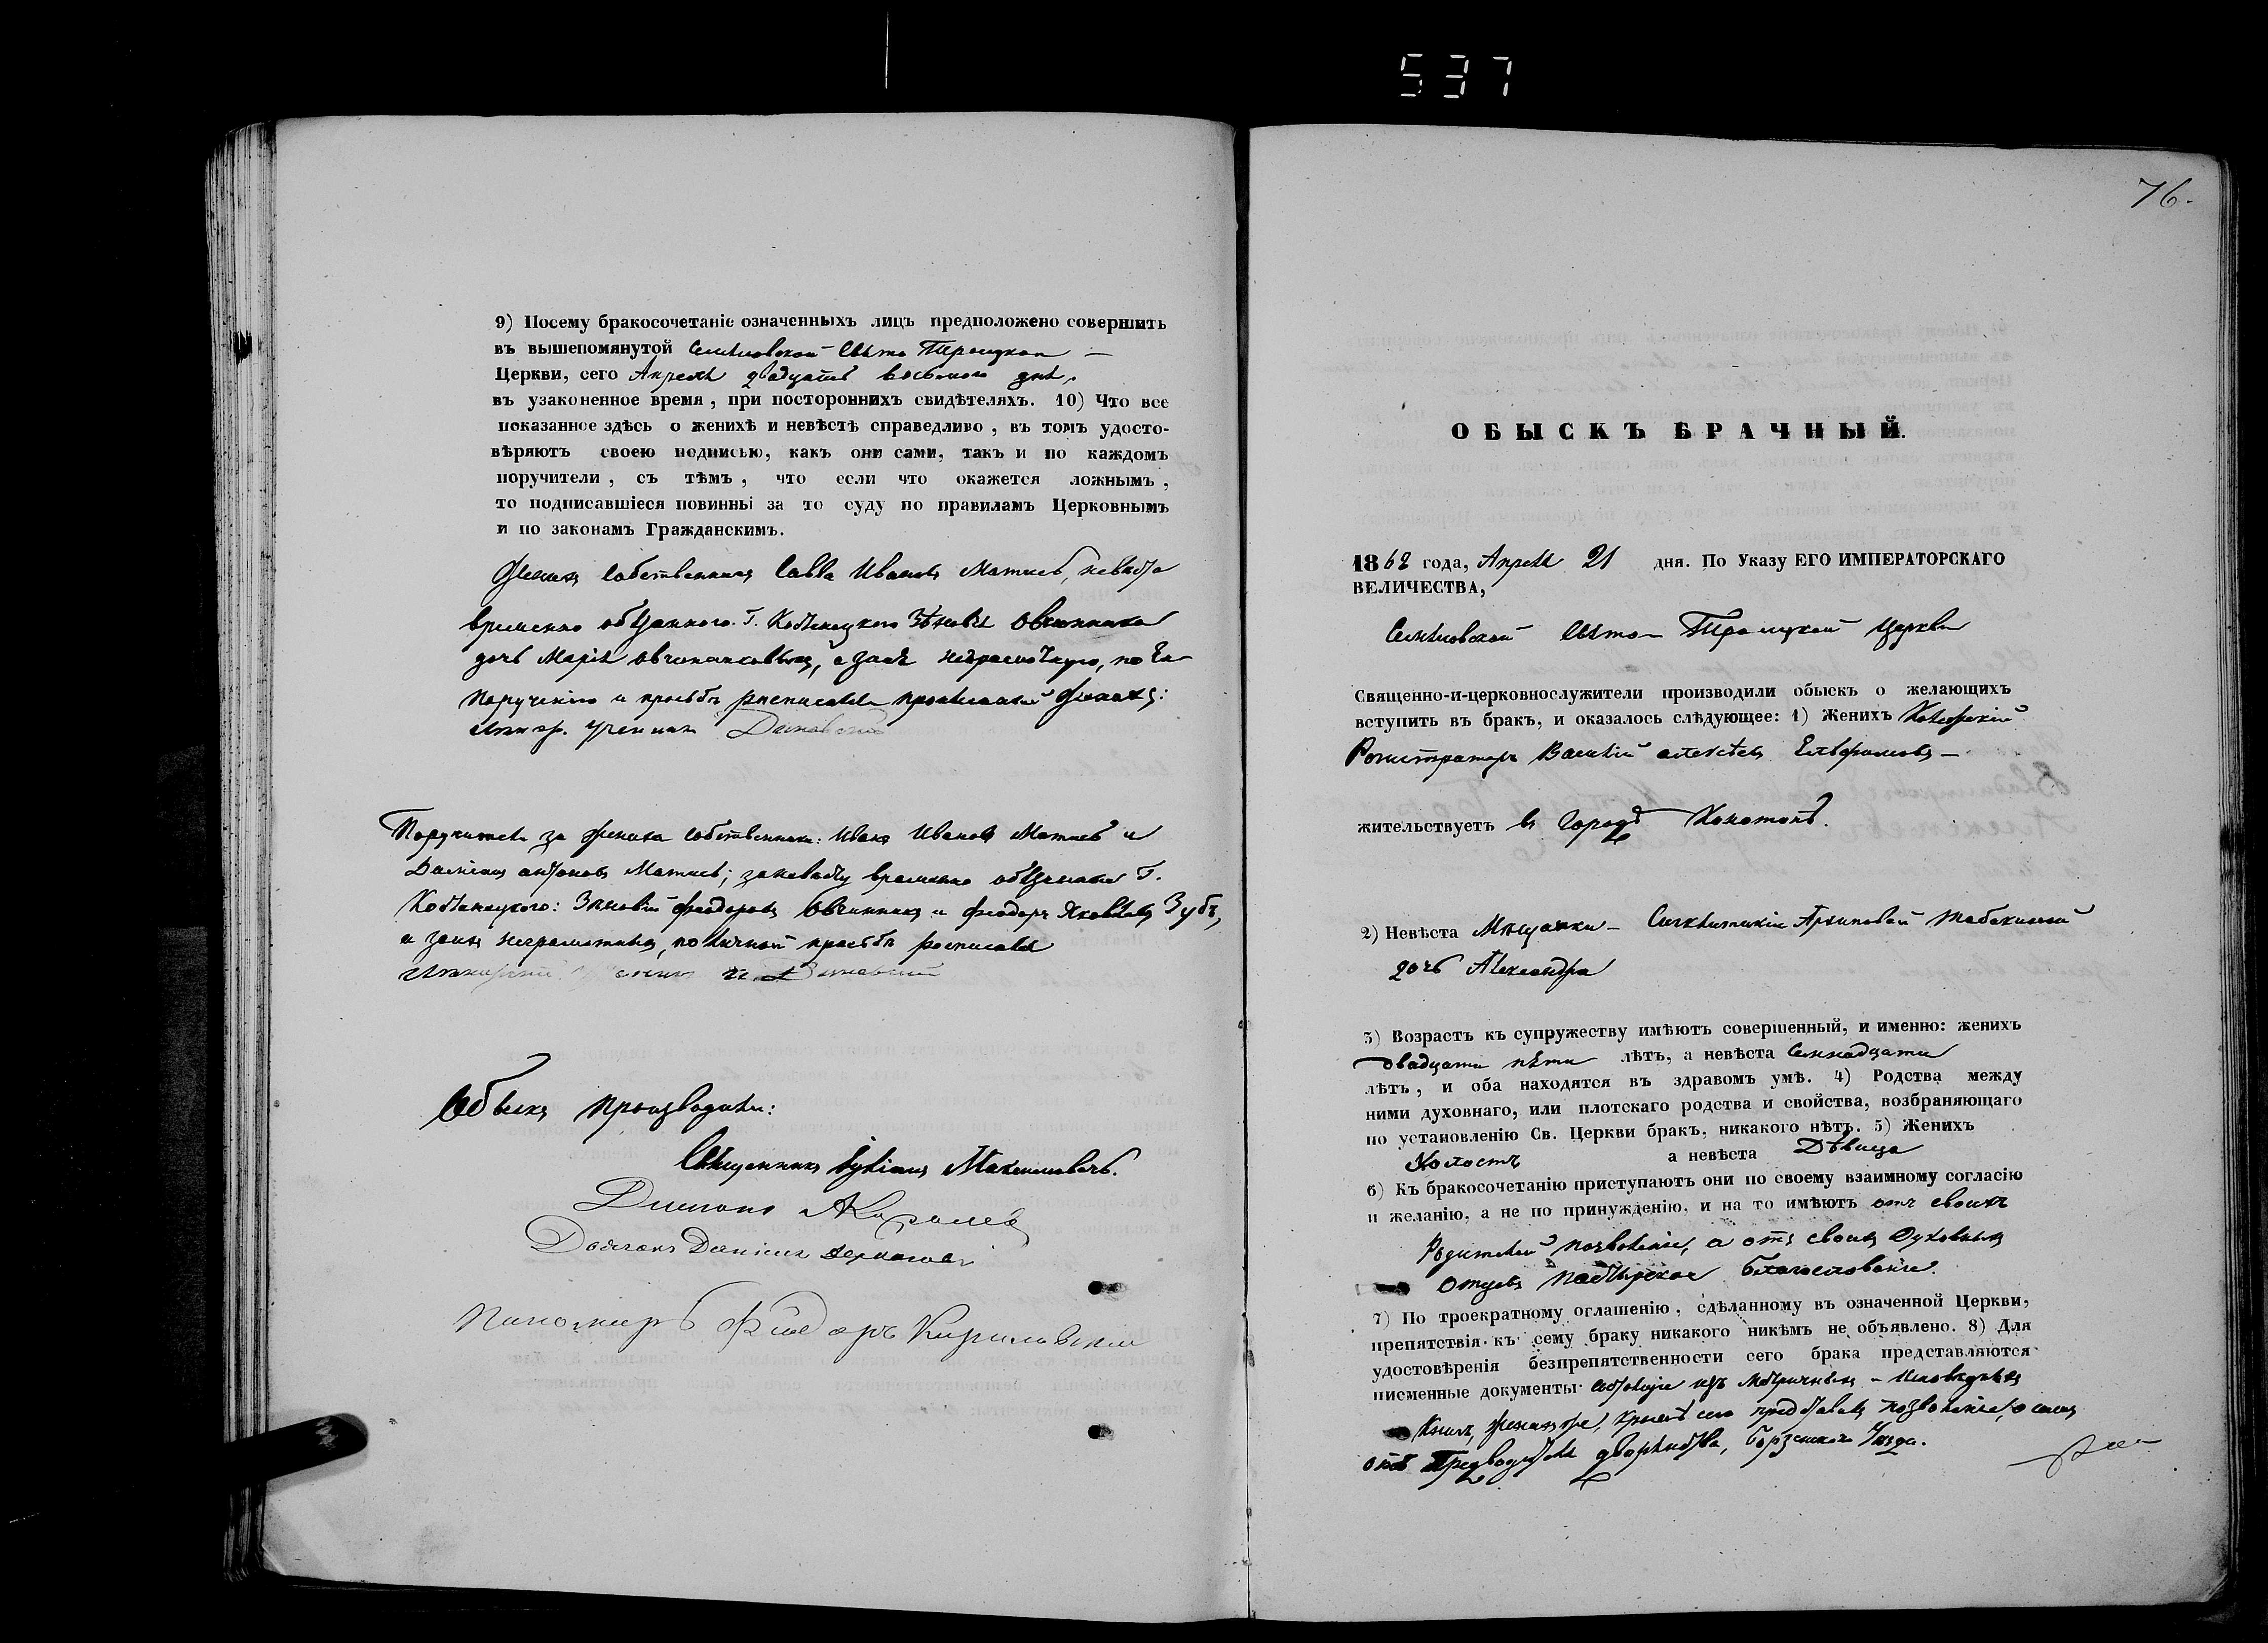 537
9) Посему бракосочетаніе означенныхъ лицъ предположено совершить
въ вышепомянутой Свято Троицкой —
Церкви, сего Апреля двадцать восьмого дня,
въ узаконенное время, при постороннихъ свидѣтеляхъ. 10) Что все
показанное здѣсь о женихѣ и невѣстѣ справедливо, въ томъ удосто-
вѣряютъ своею подписью, какъ они сами, такъ и по каждомъ
поручители, съ тѣмъ, что если что окажется ложнымъ,
то подписавшіеся повинны за то суду по правиламъ Церковнымъ
и по законамъ Гражданскимъ.
Женихъ собственникъ Савва Ивановъ Матіевъ, невѣста
временно обязанного Г. Овчинника
дочь Марія
порученію и прозьбѣ росписался женихъ:
ученикъ
Поручители за жениха собственники: Иванъ Ивановъ Матіевъ и
Даміанъ Антоновъ Матіевъ; за невѣсту временно обязанные Г.
Зѣновій Феодоровъ Овчинникъ и Феодоръ Яковлевъ Зубъ,
а за неграмотныхъ, по личной прозьбѣ росписался
Обыскъ производили:
Священникъ Іуліанъ Максимовичъ.
Диаконъ
Даніилъ
Пономаръ Фіодоръ Кириловскій
76.
ОБЫСКЪ БРАЧНЫЙ.
1862 года, Апреля 21 дня. По Указу ЕГО ИМПЕРАТОРСКАГО
ВЕЛИЧЕСТВА,
Свято-Троицкой Церкви
Священно-и-церковнослужители производили обыскъ о желающихъ
вступить въ бракъ, и оказалось слѣдующее: 1) Женихъ Колежскій
Регистраторъ Василій Алексѣевъ Елефимовъ —
жительствуетъ въ Городѣ Конотопѣ.
2) Невѣста Мѣщанки Архиповой
дочь Александра
3) Возрастъ къ супружеству имѣютъ совершенный, и именно: женихъ
двадцати пяти лѣтъ, а невѣста семнадцати
лѣтъ, и оба находятся въ здравомъ умѣ. 4) Родства между
ними духовнаго, или плотскаго родства и свойства, возбраняющаго
по установленію Св. Церкви бракъ, никакого нѣтъ. 5) Женихъ
Холостъ а невѣста Дѣвица
6) Къ бракосочетанію приступаютъ они по своему взаимному согласію
и желанію, а не по принужденію, и на то имѣютъ отъ своихъ
Родителей позволеніе, а отъ своихъ Духовныхъ
Отцевъ пастырское благословеніе.
7) По троекратному оглашенію, сдѣланному въ означенной Церкви,
препятствія къ сему браку никакого никѣмъ не объявлено. 8) Для
удостовѣренія безпрепятственности сего брака представляются
писменные документы: изъ Метричныхъ и Исповѣдныхъ
Книгъ, женихъ же, кромѣ сего представилъ позволеніе
отъ Предводителя дворянства, Борзенскаго Уѣзда.